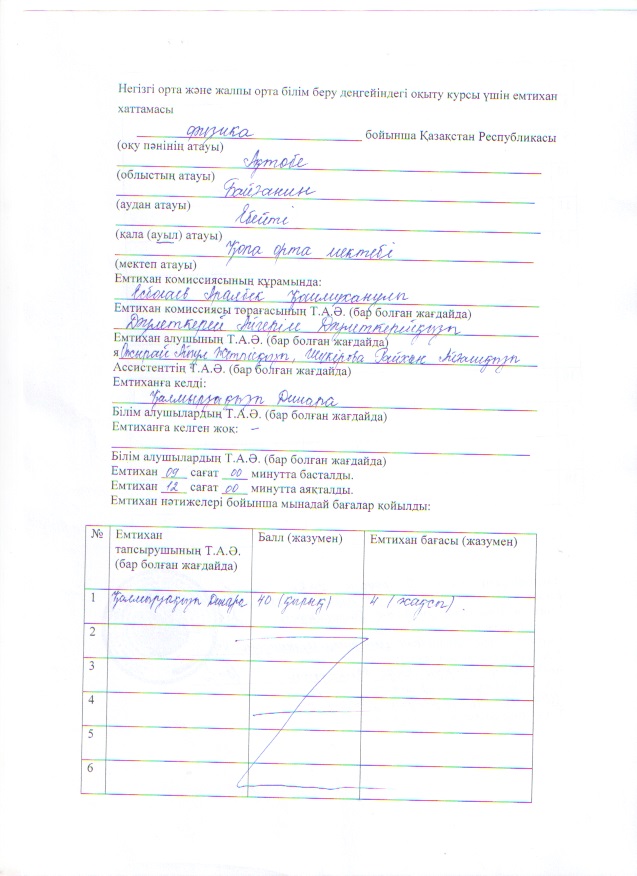 Негізгі орта және жалпы орта білім беру деңгейіндегі оқыту курсы үшін емтихан
хаттамасы
физика бойынша Қазақстан Республикасы
(оқу пәнінің атауы)
Ақтөбе
(облыстың атауы)
Байғанин
(аудан атауы)
Ебейті
(қала (ауыл) атауы)
Қопа орта мектебі
(мектеп атауы)
Емтихан комиссиясының құрамында:
Аралбек
Емтихан комиссиясы торағасының Т.А.Ә. (бар болған жағдайда)
Дәулеткерей Айгерім Дәулеткерейқызы
Емтихан алушының Т.А.Ә. (бар болған жағдайда)
я Шукірова Райхан
Ассистенттің Т.А.Ә. (бар болған жағдайда)
Емтиханға келді:
Қалмырзақызы Динара
Білім алушылардың Т.А.Ә. (бар болған жағдайда)
Емтиханға келген жоқ: –
Білім алушылардың Т.А.Ә. (бар болған жағдайда)
Емтихан 09 сағат 00 минутта басталды.
Емтихан 12 сағат 00 минутта аяқталды.
Емтихан нәтижелері бойынша мынадай бағалар қойылды:
№ Емтихан тапсырушының Т.А.Ә. (бар болған жағдайда) Балл (жазумен) Емтихан бағасы (жазумен)
1 Қалмырзақызы Динара 40 (қырық) 4 (жақсы).
2
3
4
5
6